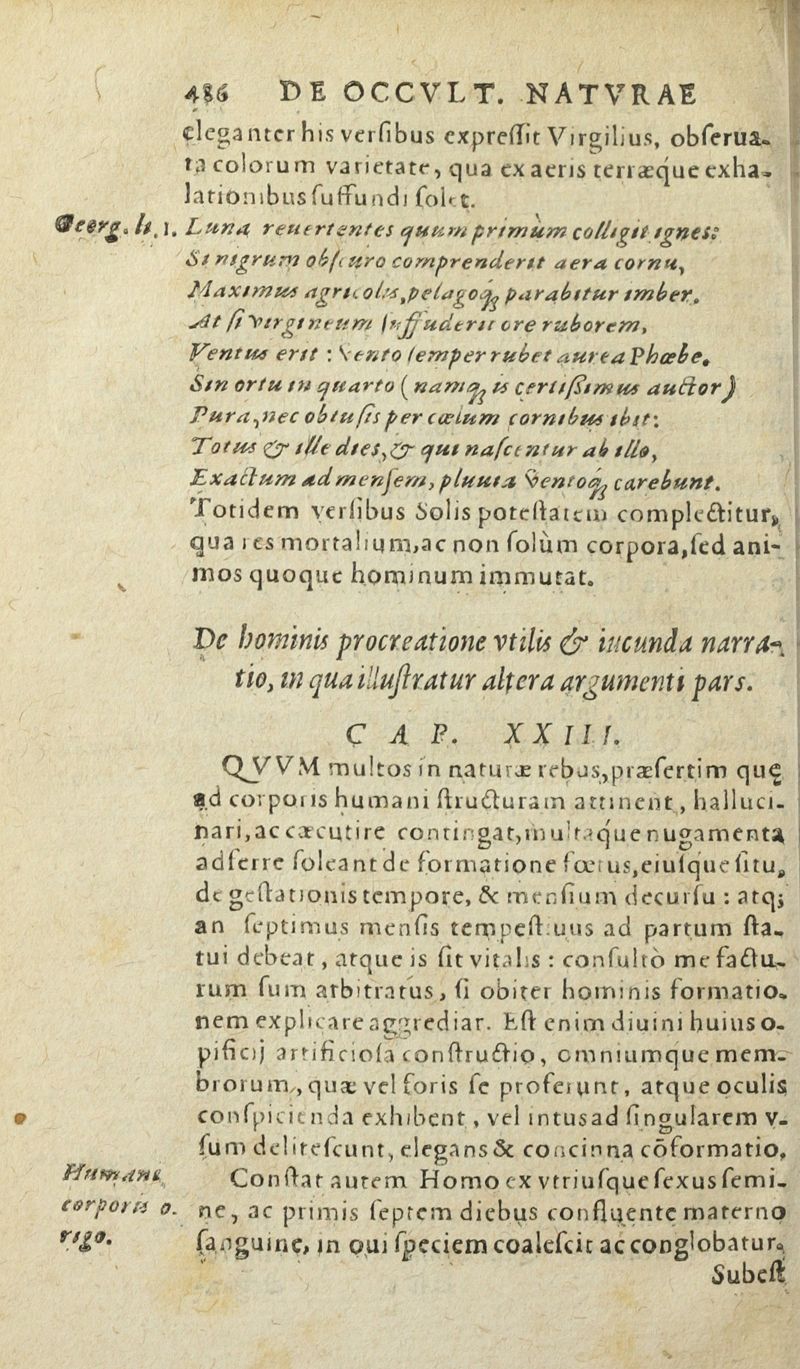 486 DE OCCVLT. NATVRAE
eleganter his versibus expressit Virgilius, obserua-
ta colorum varietate, qua ex aeris terræque exha-
lationibus suffundi solet.
Georg. li. 1. Luna reuertentes quum primùm colligit ignes:
Si nigrum obscuro comprenderit aera cornu,
Maximus agricolis, pelagoq; parabitur imber.
At si virgineum suffuderit ore ruborem,
Ventus erit: vento semper rubet aurea Phœbe.
Sin ortu in quarto (namq; is certißimus auctor)
Pura, nec obtusis per cœlum cornibus ibit:
Totus & ille dies, & qui nascentur ab illo,
Exactum ad mensem, pluuia ventoq; carebunt.
Totidem versibus Solis potestatem complectitur,
qua res mortalium, ac non solùm corpora, sed ani-
mos quoque hominum immutat.
De hominis procreatione vtilis & iucunda narra-
tio, in qua illustratur altera argumenti pars.
CAP. XXIII.
QVVM multos in naturæ rebus, præsertim quę
ad corporis humani structuram attinent, halluci-
nari, ac cæcutire contingat, multaque nugamenta
adferre soleant de formatione fœtus, eiusque situ,
de gestationis tempore, & mensium decursu: atq;
an septimus mensis tempestiuus ad partum sta-
tui debeat, atque is sit vitalis: consultò me factu-
rum sum arbitratus, si obiter hominis formatio-
nem explicare aggrediar. Est enim diuini huius o-
pificij artificiosa constructio, omniumque mem-
brorum, quæ vel foris se proferunt, atque oculis
conspicienda exhibent, vel intus ad singularem v-
sum delitescunt, elegans & concinna cōformatio.
Humani Constat autem Homo ex vtriusque sexus semi-
corporis o- ne, ac primis septem diebus confluente materno
rigo. sanguine, in oui speciem coalescit ac conglobatur.
Subest